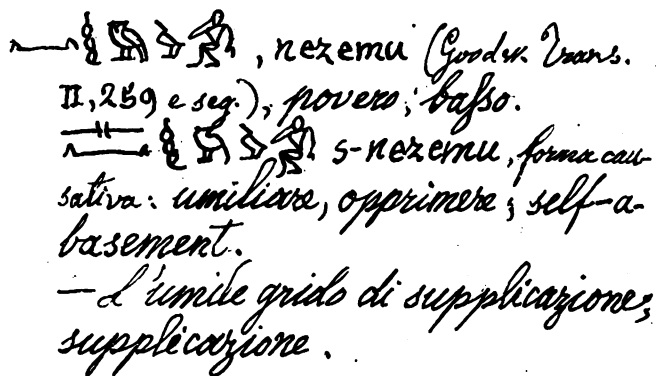 , nezemu (Goodw. Trans.
II, 259 e seg.), povero; basso.
s-nezemu, forma cau-
sativa: umiliare, opprimere; self-a-
basement.
— L'umile grido di supplicazione;
supplicazione.